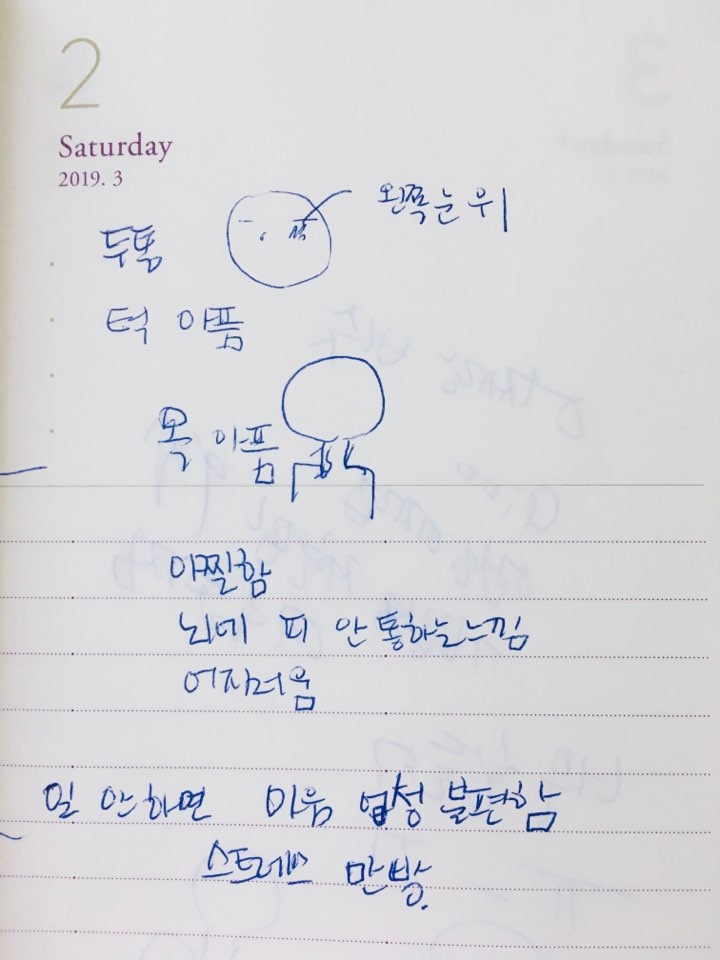 2
Saturday
2019. 3
왼쪽 눈 위
두통
턱 아픔
목 아픔
아찔함
뇌에 피 안 통하는 느낌
어지러움
일 안하면 마음 엄청 불편함
스트레스 만빵.